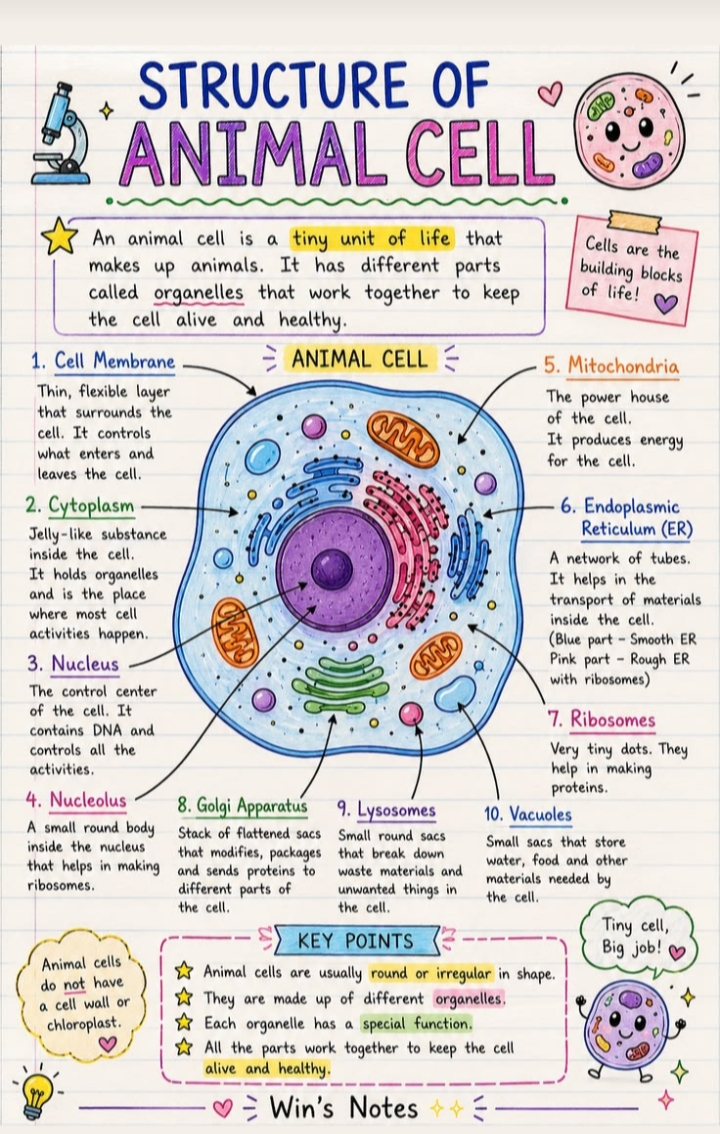 STRUCTURE OF
ANIMAL CELL
An animal cell is a tiny unit of life that
makes up animals. It has different parts
called organelles that work together to keep
the cell alive and healthy.
Cells are the
building blocks
of life!
ANIMAL CELL
1. Cell Membrane
Thin, flexible layer
that surrounds the
cell. It controls
what enters and
leaves the cell.
2. Cytoplasm
Jelly-like substance
inside the cell.
It holds organelles
and is the place
where most cell
activities happen.
3. Nucleus
The control center
of the cell. It
contains DNA and
controls all the
activities.
4. Nucleolus
A small round body
inside the nucleus
that helps in making
ribosomes.
5. Mitochondria
The power house
of the cell.
It produces energy
for the cell.
6. Endoplasmic
Reticulum (ER)
A network of tubes.
It helps in the
transport of materials
inside the cell.
(Blue part - Smooth ER
Pink part - Rough ER
with ribosomes)
7. Ribosomes
Very tiny dots. They
help in making
proteins.
8. Golgi Apparatus
Stack of flattened sacs
that modifies, packages
and sends proteins to
different parts of
the cell.
9. Lysosomes
Small round sacs
that break down
waste materials and
unwanted things in
the cell.
10. Vacuoles
Small sacs that store
water, food and other
materials needed by
the cell.
Animal cells
do not have
a cell wall or
chloroplast.
KEY POINTS
Animal cells are usually round or irregular in shape.
They are made up of different organelles.
Each organelle has a special function.
All the parts work together to keep the cell
alive and healthy.
Tiny cell,
Big job!
Win's Notes